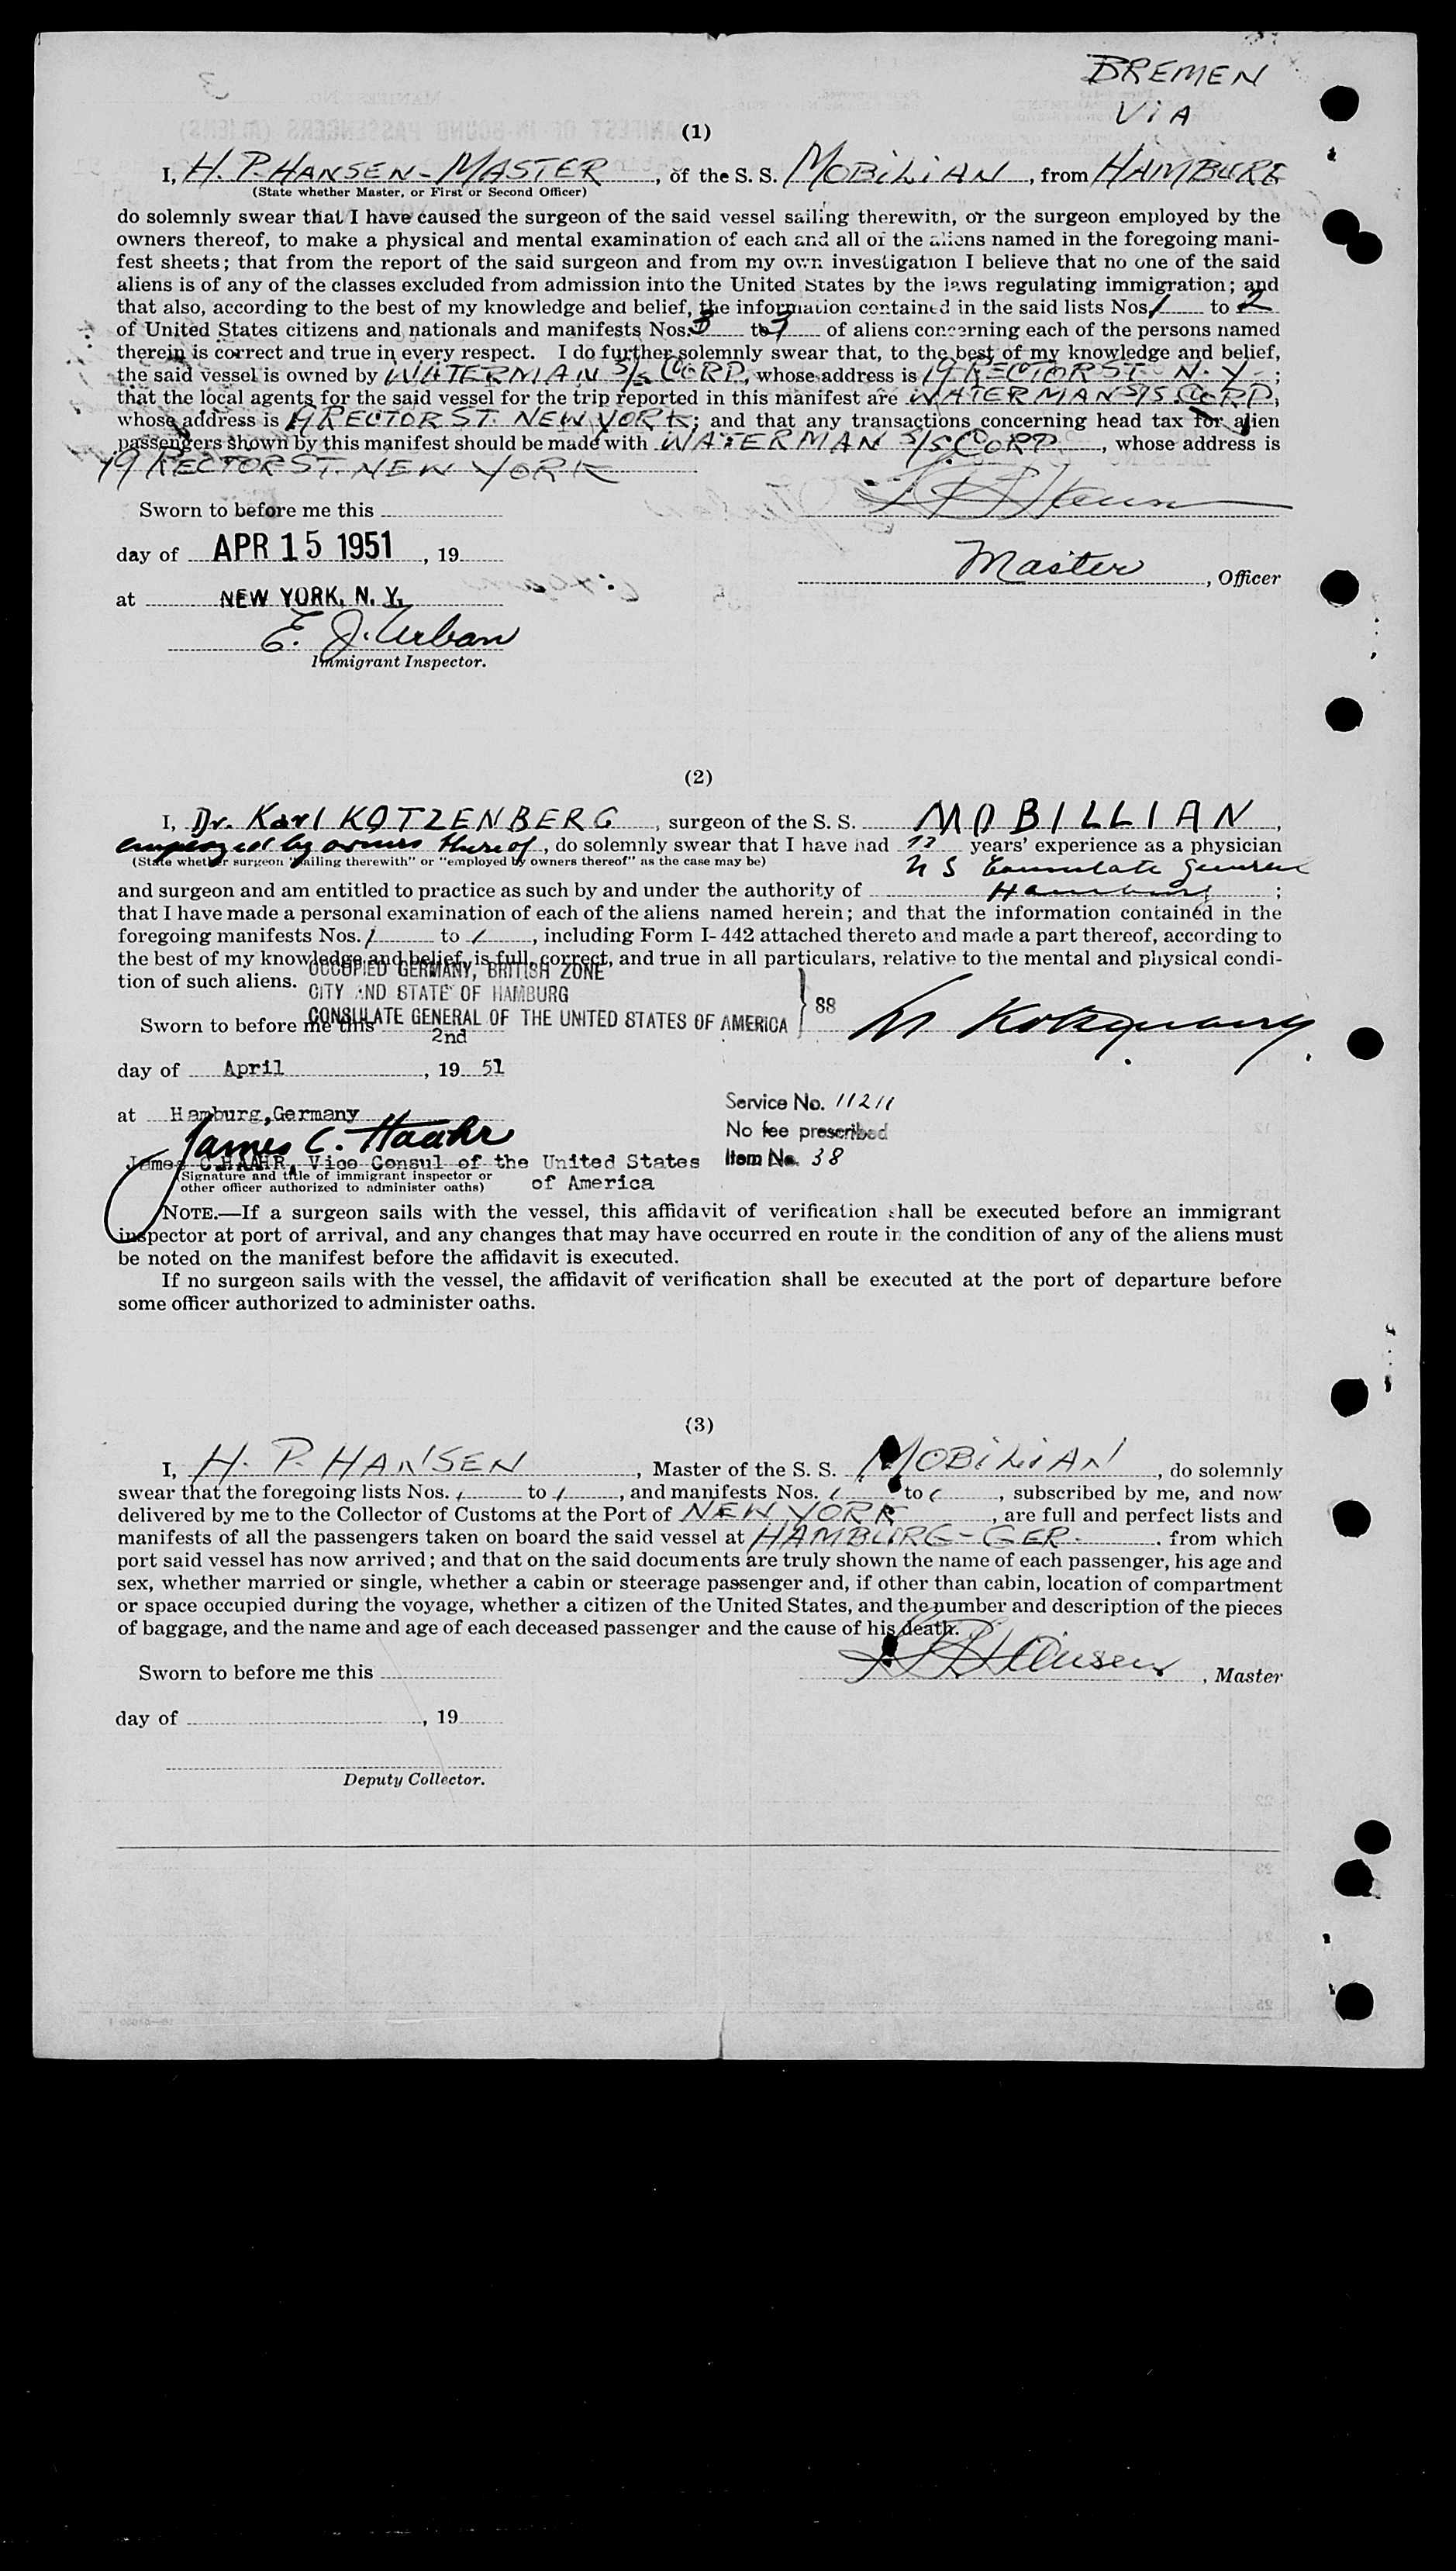 BREMEN
VIA
(1)
I, H. P. HANSEN - MASTER, of the S. S. MOBILIAN, from HAMBURG
(State whether Master, or First or Second Officer)
do solemnly swear that I have caused the surgeon of the said vessel sailing therewith, or the surgeon employed by the
owners thereof, to make a physical and mental examination of each and all of the aliens named in the foregoing mani-
fest sheets; that from the report of the said surgeon and from my own investigation I believe that no one of the said
aliens is of any of the classes excluded from admission into the United States by the laws regulating immigration; and
that also, according to the best of my knowledge and belief, the information contained in the said lists Nos. 1 to 2
of United States citizens and nationals and manifests Nos. 3 to 3 of aliens concerning each of the persons named
therein is correct and true in every respect. I do further solemnly swear that, to the best of my knowledge and belief,
the said vessel is owned by WATERMAN S/S CORP, whose address is 19 RECTOR ST. N. Y.;
that the local agents for the said vessel for the trip reported in this manifest are WATERMAN S/S CORP,
whose address is 19 RECTOR ST. NEW YORK; and that any transactions concerning head tax for alien
passengers shown by this manifest should be made with WATERMAN S/S. CORP, whose address is
19 RECTOR ST. NEW YORK
Sworn to before me this
day of APR 15 1951, 19
Master, Officer
at NEW YORK, N. Y.
E. J. Urban
Immigrant Inspector.
(2)
I, Dr. Karl KOTZENBERG, surgeon of the S. S. MOBILLIAN,
employed by owners thereof, do solemnly swear that I have had years' experience as a physician
(State whether surgeon "sailing therewith" or "employed by owners thereof" as the case may be)
U S Consulate General
and surgeon and am entitled to practice as such by and under the authority of Hamburg;
that I have made a personal examination of each of the aliens named herein; and that the information contained in the
foregoing manifests Nos. 1 to 1, including Form I-442 attached thereto and made a part thereof, according to
the best of my knowledge and belief, is full, correct, and true in all particulars, relative to the mental and physical condi-
tion of such aliens.
OCCUPIED GERMANY, BRITISH ZONE
CITY AND STATE OF HAMBURG
CONSULATE GENERAL OF THE UNITED STATES OF AMERICA } SS
Sworn to before me this 2nd
K Kotzenberg
day of April, 19 51
at Hamburg, Germany
Service No. 11211
No fee prescribed
Item No. 38
James C. Haahr
James C. HAAHR, Vice Consul of the United States
of America
(Signature and title of immigrant inspector or
other officer authorized to administer oaths)
NOTE.—If a surgeon sails with the vessel, this affidavit of verification shall be executed before an immigrant
inspector at port of arrival, and any changes that may have occurred en route in the condition of any of the aliens must
be noted on the manifest before the affidavit is executed.
If no surgeon sails with the vessel, the affidavit of verification shall be executed at the port of departure before
some officer authorized to administer oaths.
(3)
I, H. P. HANSEN, Master of the S. S. MOBILIAN, do solemnly
swear that the foregoing lists Nos. 1 to 1, and manifests Nos. 1 to 1, subscribed by me, and now
delivered by me to the Collector of Customs at the Port of NEW YORK, are full and perfect lists and
manifests of all the passengers taken on board the said vessel at HAMBURG - GER. from which
port said vessel has now arrived; and that on the said documents are truly shown the name of each passenger, his age and
sex, whether married or single, whether a cabin or steerage passenger and, if other than cabin, location of compartment
or space occupied during the voyage, whether a citizen of the United States, and the number and description of the pieces
of baggage, and the name and age of each deceased passenger and the cause of his death.
Sworn to before me this
H P Hansen, Master
day of , 19
Deputy Collector.